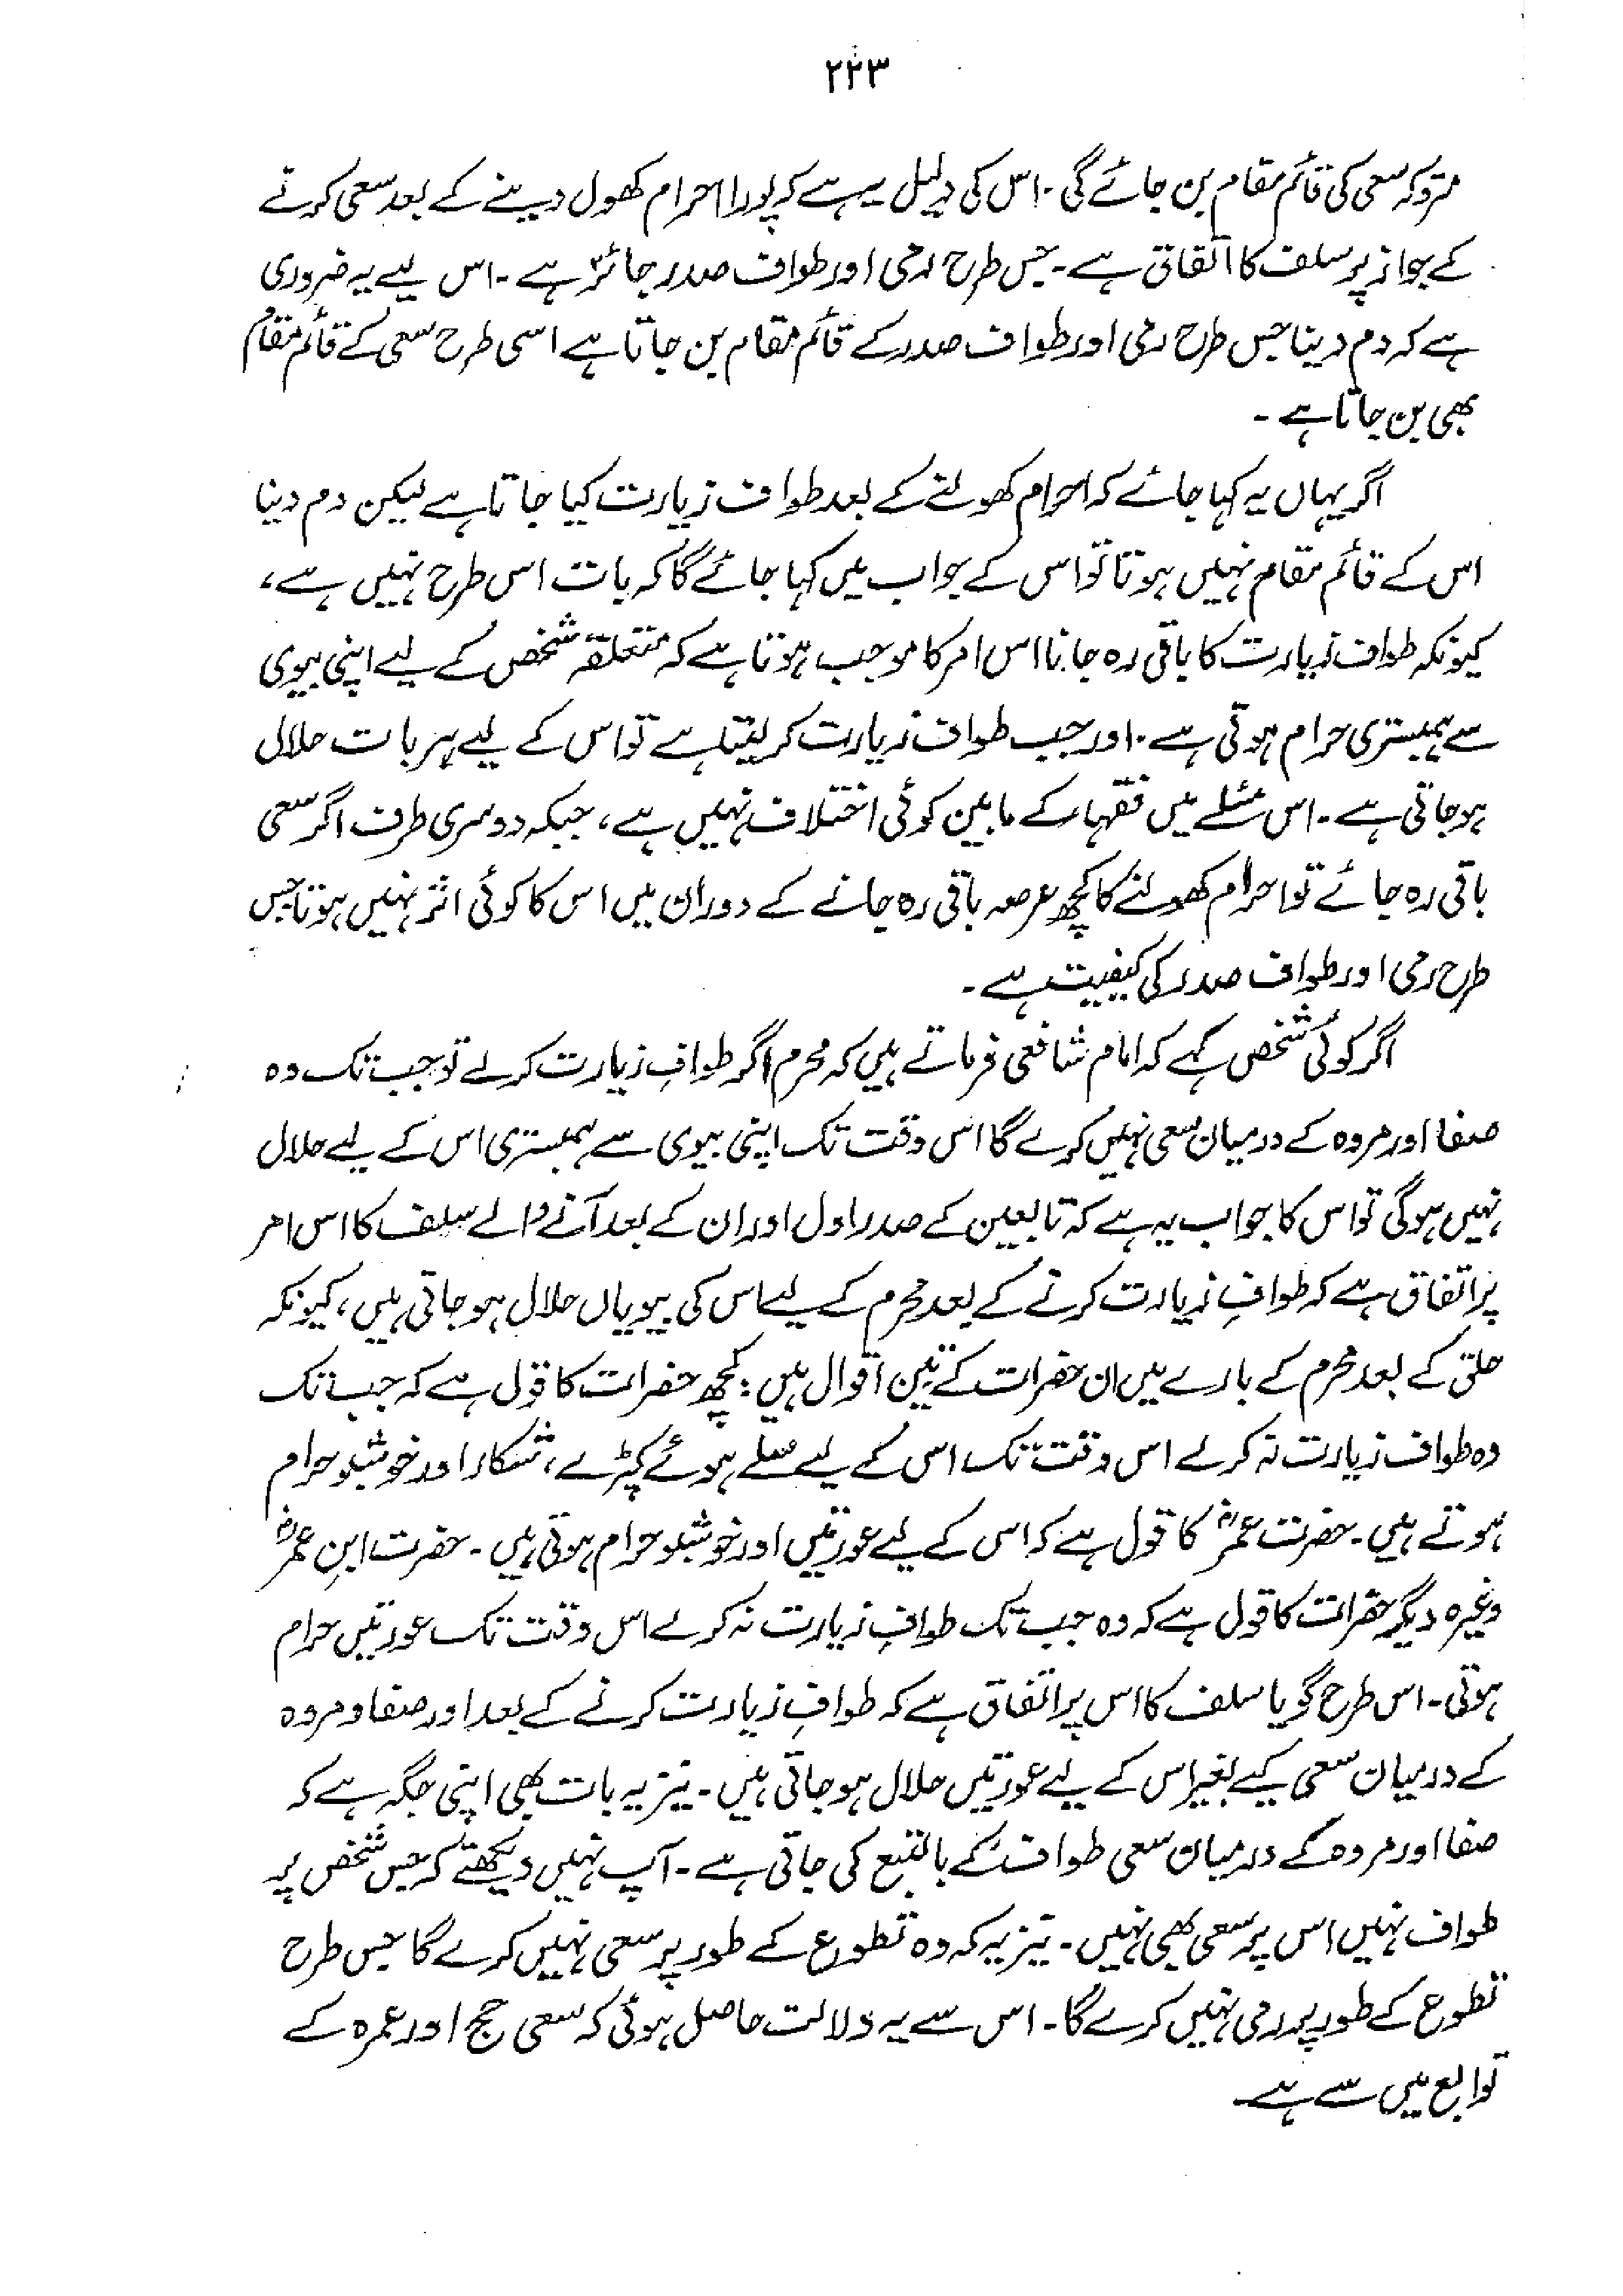 ۲۲۳
متروکہ سعی کی قائم مقام بن جائے گی۔ اس کی دلیل یہ ہے کہ پورا احرام کھول دینے کے بعد سعی کرنے
کے جواز پر سلف کا اتفاق ہے۔ جس طرح رمی اور طواف صدر جائز ہے۔ اس لیے یہ ضروری
ہے کہ دم دینا جس طرح رمی اور طواف صدر کے قائم مقام بن جاتا ہے اسی طرح سعی کے قائم مقام
بھی بن جاتا ہے۔
اگر یہاں یہ کہا جائے کہ احرام کھولنے کے بعد طواف زیارت کیا جاتا ہے لیکن دم دینا
اس کے قائم مقام نہیں ہوتا تو اس کے جواب میں کہا جائے گا کہ بات اس طرح نہیں ہے،
کیونکہ طواف زیارت کا باقی رہ جانا اس امر کا موجب ہوتا ہے کہ متعلقہ شخص کے لیے اپنی بیوی
سے ہمبستری حرام ہوتی ہے۔ اور جب طواف زیارت کر لیتا ہے تو اس کے لیے ہر بات حلال
ہو جاتی ہے۔ اس مسئلے میں فقہاء کے مابین کوئی اختلاف نہیں ہے، جبکہ دوسری طرف اگر سعی
باقی رہ جائے تو احرام کھولنے کا کچھ عرصہ باقی رہ جانے کے دوران میں اس کا کوئی اثر نہیں ہوتا جس
طرح رمی اور طواف صدر کی کیفیت ہے۔
اگر کوئی شخص کہے کہ امام شافعی فرماتے ہیں کہ محرم اگر طوافِ زیارت کر لے تو جب تک وہ
صفا اور مروہ کے درمیان سعی نہیں کرے گا اس وقت تک اپنی بیوی سے ہمبستری اس کے لیے حلال
نہیں ہوگی تو اس کا جواب یہ ہے کہ تابعین کے صدر اول اور ان کے بعد آنے والے سلف کا اس امر
پر اتفاق ہے کہ طوافِ زیارت کرنے کے بعد محرم کے لیے اس کی بیویاں حلال ہو جاتی ہیں، کیونکہ
حلق کے بعد محرم کے بارے میں ان حضرات کے تین اقوال ہیں: کچھ حضرات کا قول ہے کہ جب تک
وہ طواف زیارت نہ کر لے اس وقت تک اس کے لیے سلے ہوئے کپڑے، شکار اور خوشبو حرام
ہوتے ہیں۔ حضرت عمرؓ کا قول ہے کہ اس کے لیے عورتیں اور خوشبو حرام ہوتی ہیں۔ حضرت ابنِ عمرؓ
وغیرہ دیگر حضرات کا قول ہے کہ وہ جب تک طوافِ زیارت نہ کر لے اس وقت تک عورتیں حرام
ہوتی۔ اس طرح گویا سلف کا اس پر اتفاق ہے کہ طوافِ زیارت کرنے کے بعد اور صفا و مروہ
کے درمیان سعی کیے بغیر اس کے لیے عورتیں حلال ہو جاتی ہیں۔ نیز یہ بات بھی اپنی جگہ ہے کہ
صفا اور مروہ کے درمیان سعی طواف کے بالتبع کی جاتی ہے۔ آپ نہیں دیکھتے کہ جس شخص پر
طواف نہیں اس پر سعی بھی نہیں۔ نیز یہ کہ وہ تطوع کے طور پر سعی نہیں کرے گا جس طرح
تطوع کے طور پر رمی نہیں کرے گا۔ اس سے یہ دلالت حاصل ہوئی کہ سعی حج اور عمرہ کے
توابع میں سے ہے۔